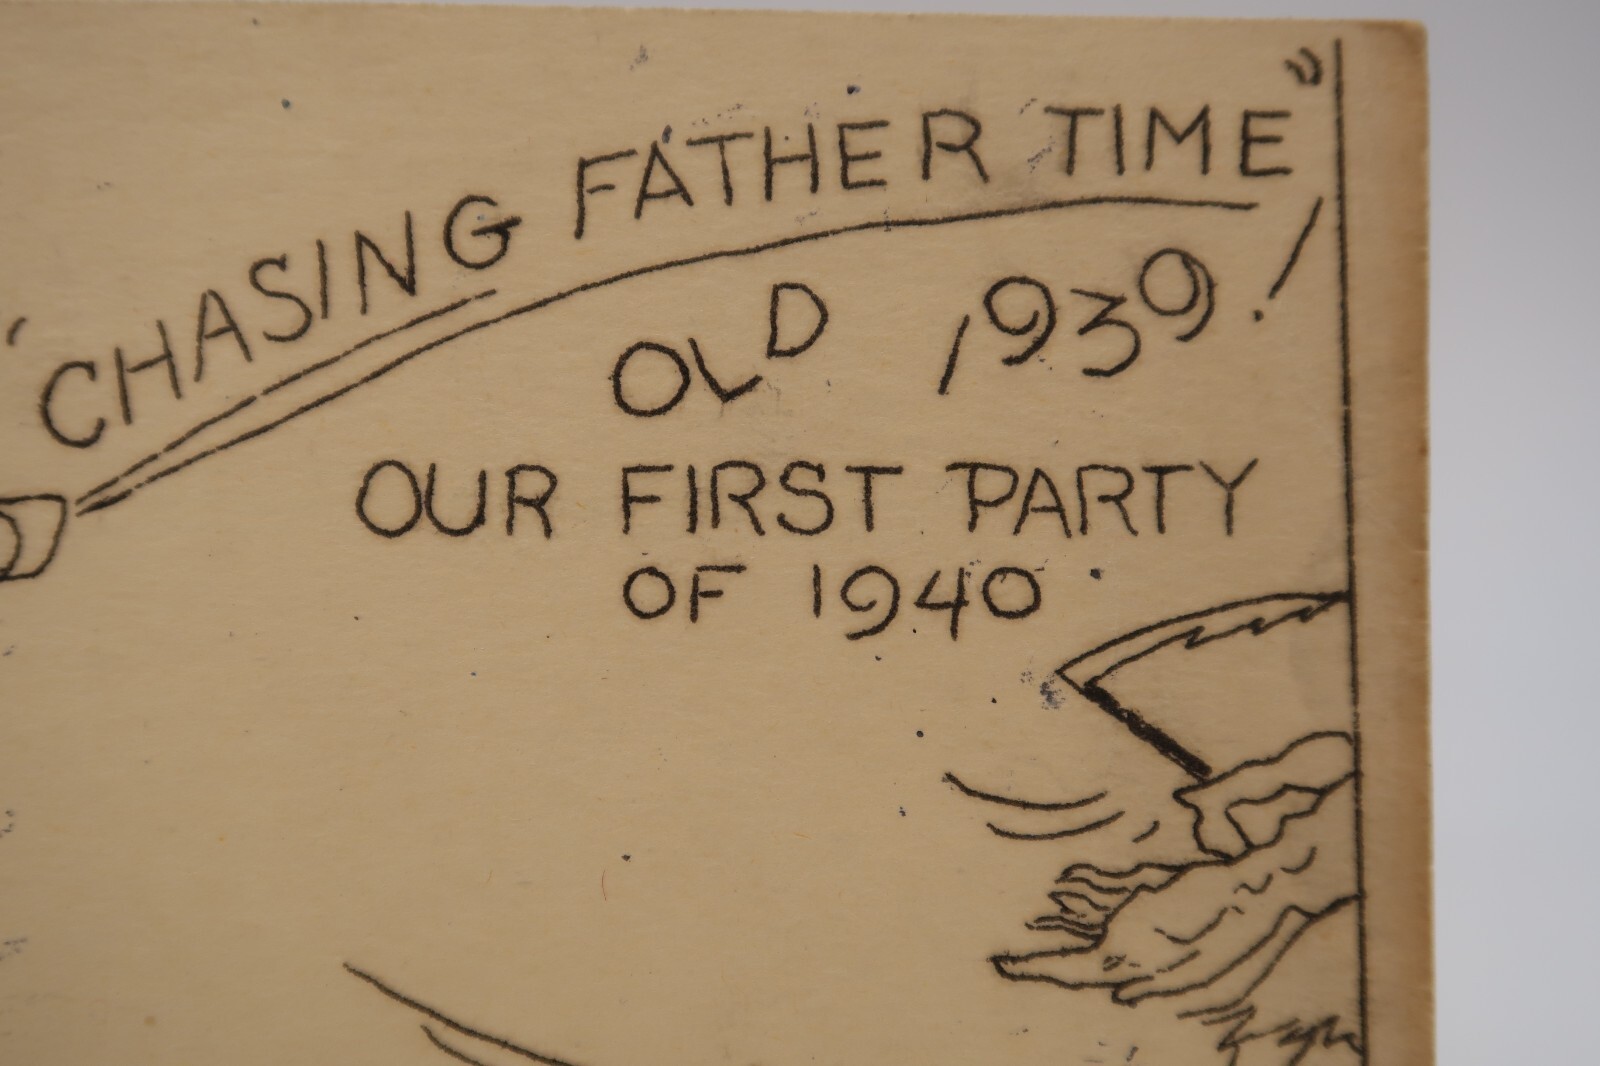 "CHASING FATHER TIME"
OLD 1939!
OUR FIRST PARTY
OF 1940